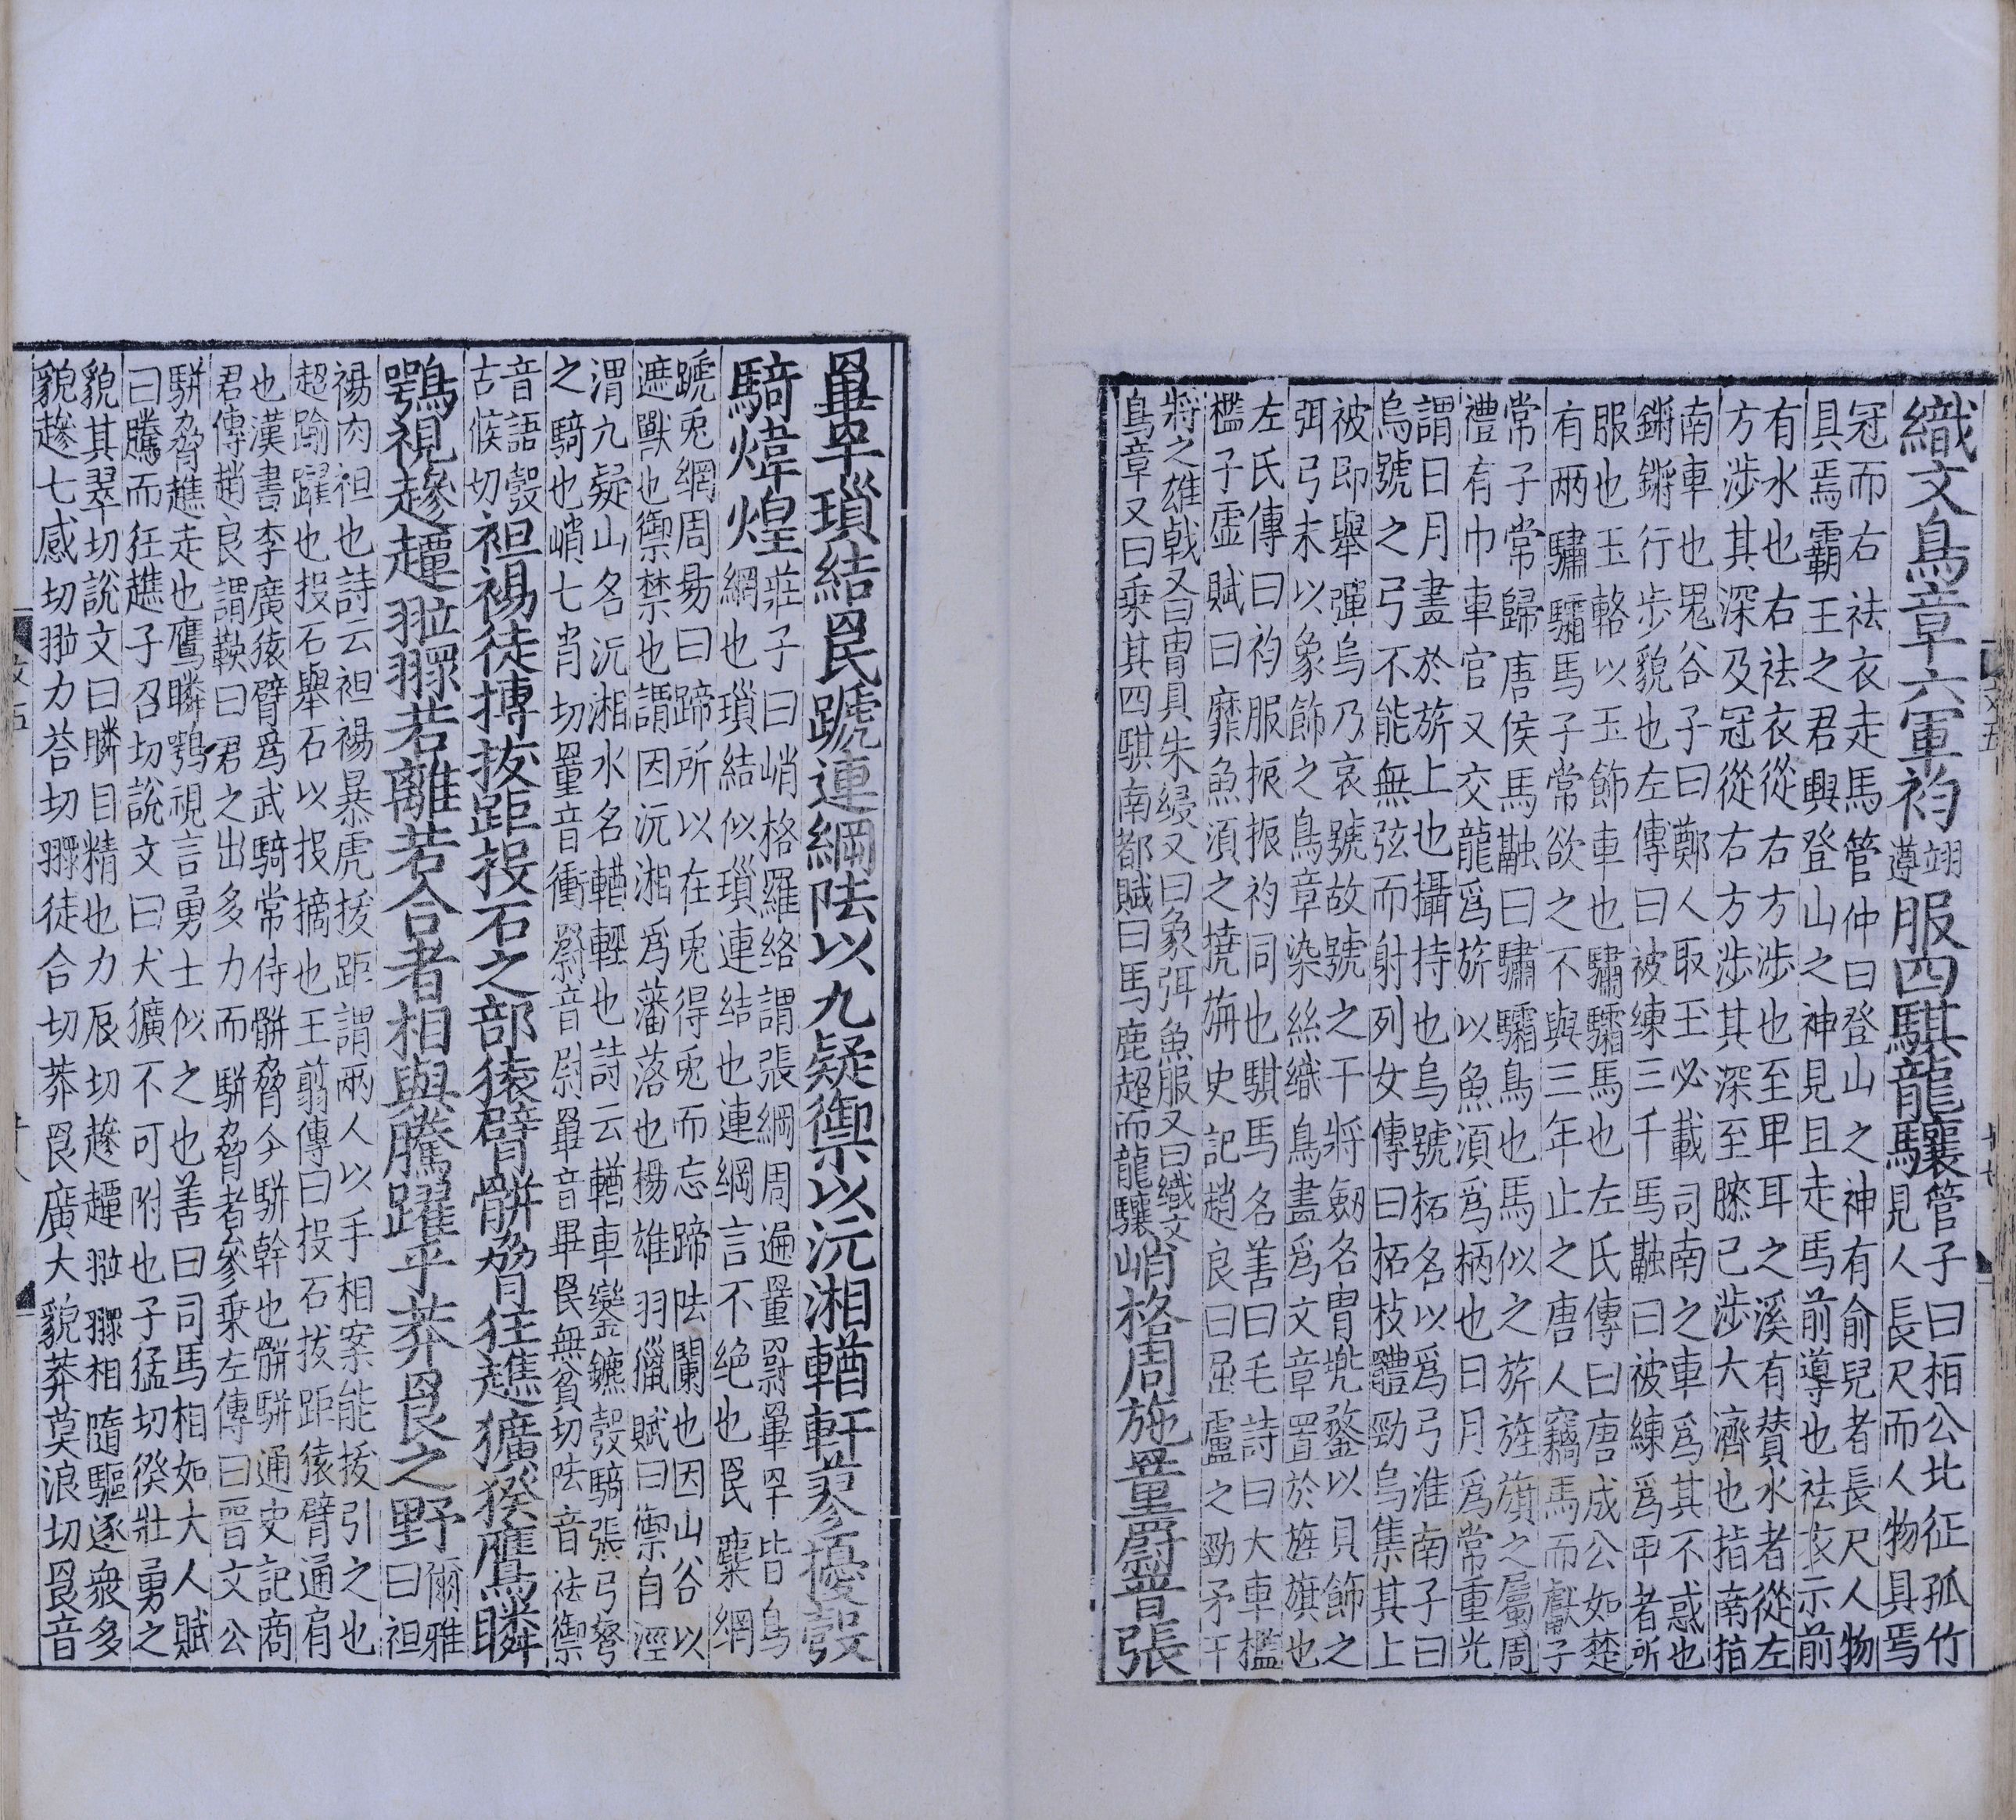 織文鳥章六軍袀翊遵服四騏龍驤管子曰桓公北征孤竹見人長尺而人物具焉
冠而右袪衣走馬管仲曰登山之神有俞兒者長尺人物
具焉霸王之君興登山之神見且走馬前導也袪衣示前
有水也右袪衣從右方涉也至卑耳之溪有贊水者從左
方涉其深及冠從右方涉其深至膝已涉大濟也指南指
南車也鬼谷子曰鄭人取玉必載司南之車爲其不惑也
鏘鏘行步貌也左傳曰被練三千馬融曰被練爲甲者所
服也玉輅以玉飾車也驌驦馬也左氏傳曰唐成公如楚
有兩驌驦馬子常欲之不與三年止之唐人竊馬而獻子
常子常歸唐侯馬融曰驌驦鳥也馬似之旂旌旗之屬周
禮有巾車官又交龍爲旂以魚湏爲柄也日月爲常重光
謂日月畫於旂上也攝持也烏號柘名以爲弓淮南子曰
烏號之弓不能無弦而射列女傳曰柘枝體勁烏集其上
被即舉彈烏乃哀號故號之干將劒名胄兠鍪以貝飾之
弭弓末以象飾之鳥章染絲織鳥畫爲文章置於旌旗也
左氏傳曰袀服振振袀同也騏馬名善曰毛詩曰大車檻
檻子虛賦曰靡魚湏之撓旃史記趙良曰屈盧之勁矛干
將之雄戟又曰胄貝朱綅又曰象弭魚服又曰織文
鳥章又曰乗其四騏南都賦曰馬鹿超而龍驤峭格周施罿罻普張
罼罕瑣結罠蹏連綱阹以九疑禦以沅湘輶軒蓼擾彀
騎煒煌莊子曰峭格羅絡謂張綱周遍罿罻罼罕皆鳥網也瑣結似瑣連結也連綱言不絶也罠麋網
蹏兎網周易曰蹄所以在兎得兎而忘蹄阹闌也因山谷以
遮獸也禦禁也謂因沅湘爲藩落也楊雄羽獵賦曰禦自涇
渭九疑山名沅湘水名輶輕也詩云輶車鑾鑣彀騎張弓弩
之騎也峭七肖切罿音衝罻音尉罼音畢罠無貧切阹音祛禦
音語彀古候切袒裼徒搏拔距投石之部猿臂骿脅狂趭獷猤鷹瞵
鶚視趁趕翋㒆若離若合者相與騰躍乎莽罠之野爾雅曰袒
裼肉袒也詩云袒裼暴虎拔距謂兩人以手相案能拔引之也
超踰躍也投石舉石以投擿也王翦傳曰投石拔距猿臂通肩
也漢書李廣猿臂爲武騎常侍骿脅今駢幹也骿駢通史記商
君傳趙良謂鞅曰君之出多力而駢脅者參乗左傳曰晉文公
駢脅趭走也鷹瞵鶚視言勇士似之也善曰司馬相如大人賦
曰騰而狂趭子召切說文曰犬獷不可附也子猛切猤壯勇之
貌其翠切說文曰瞵目精也力辰切相隨驅逐衆多
貌七感切力荅切徒合切莽罠廣大貌莽莫浪切罠音